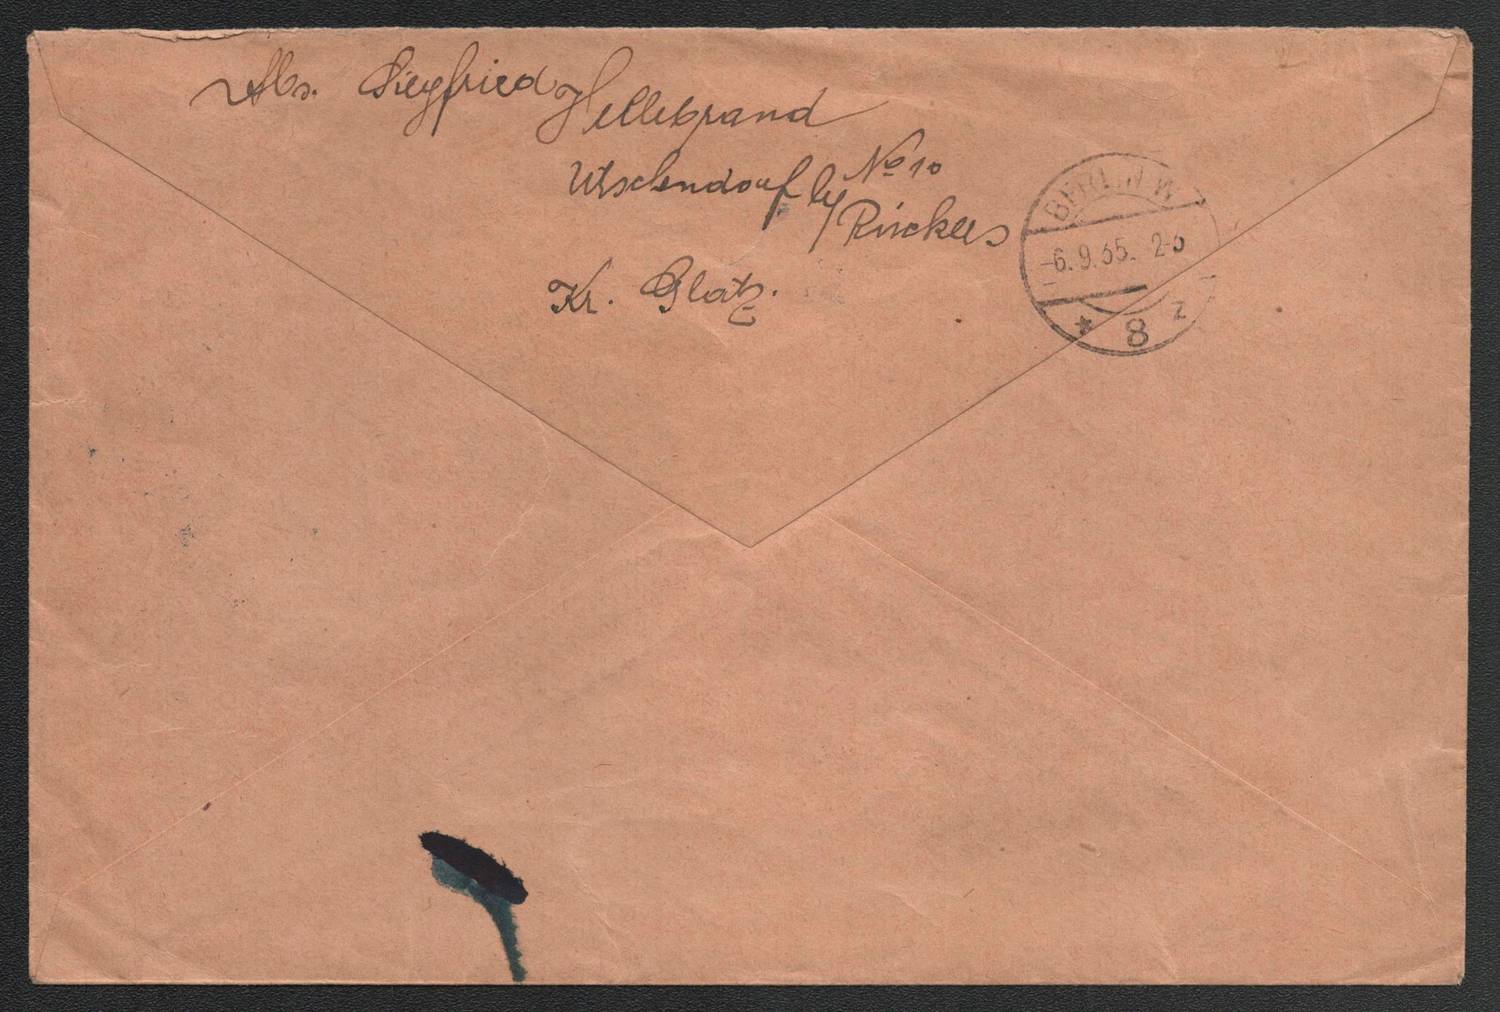 Abs. Siegfried Hellebrand
Utschendorf No 10
by/Rückers
Kr. Glatz.
BERLIN W
-6.9.35. 2-3
* 8 z